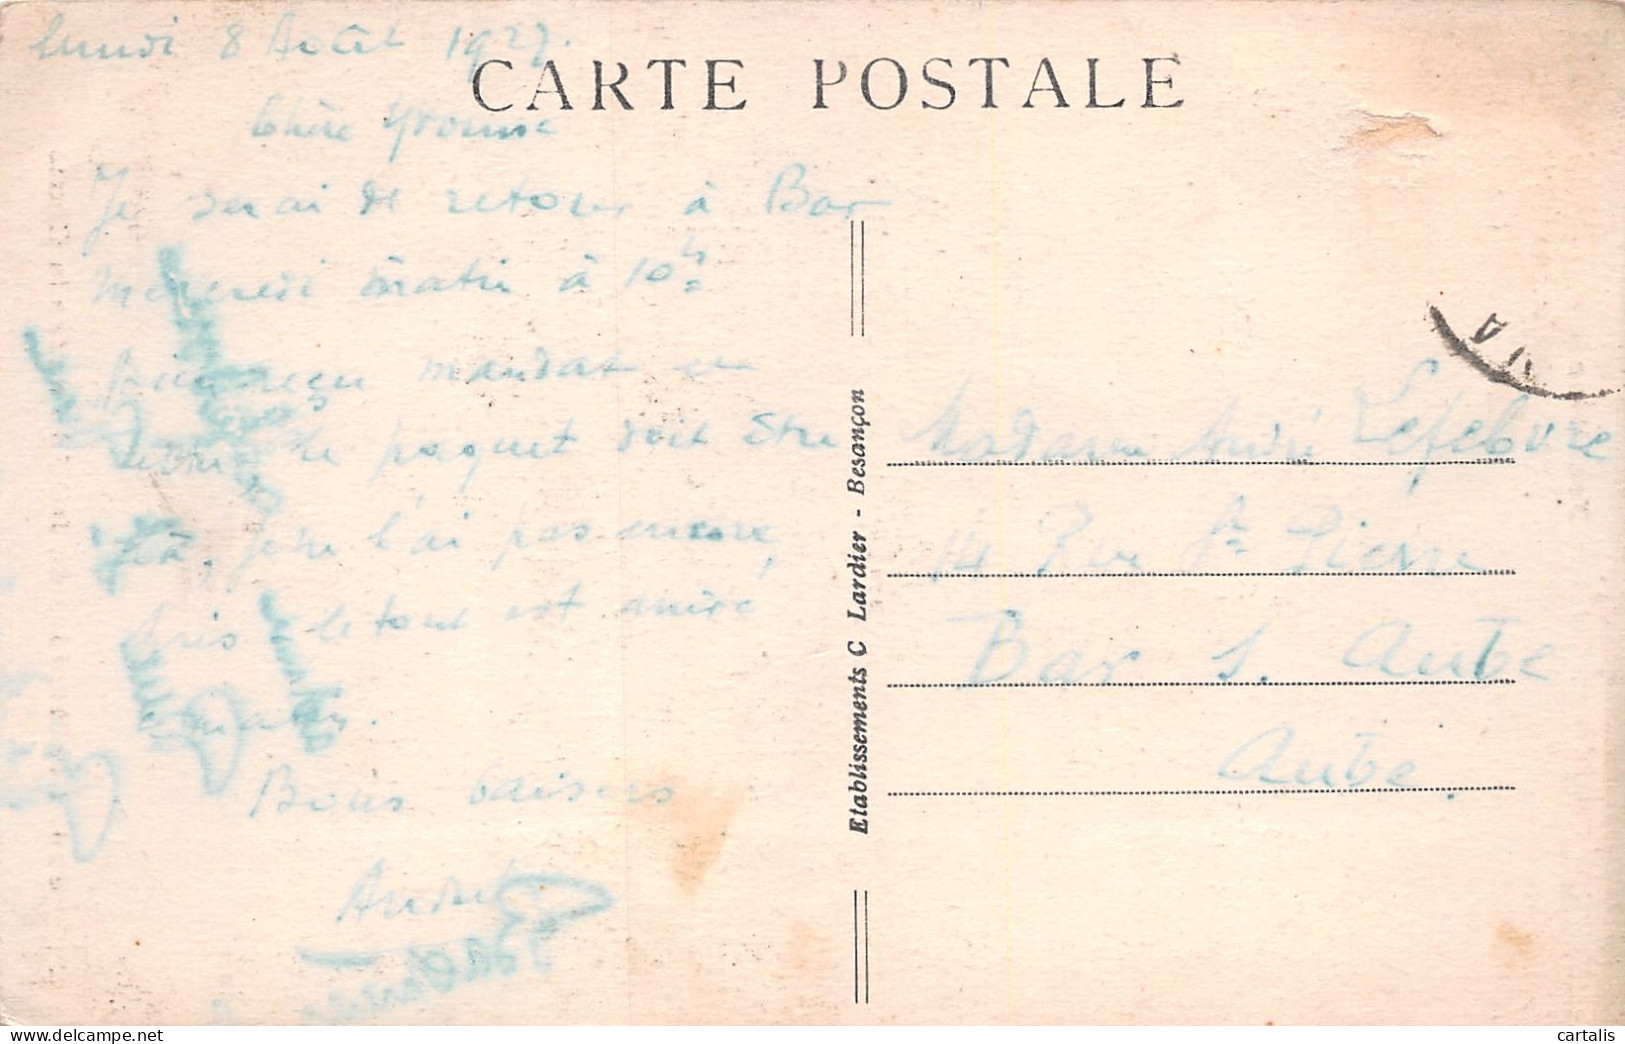 lundi 8 Août 1927.
CARTE POSTALE
Chère Yvonne
Je serai de retour à Bar
mercredi matin à 10h
reçu mandat
le paquet doit être
je ne l'ai pas encore,
le tout est arrivé
Bons baisers
André
Etablissements C Lardier - Besançon
Madame André Lefebvre
14 Rue St Pierre
Bar s. Aube
Aube.
cartalis